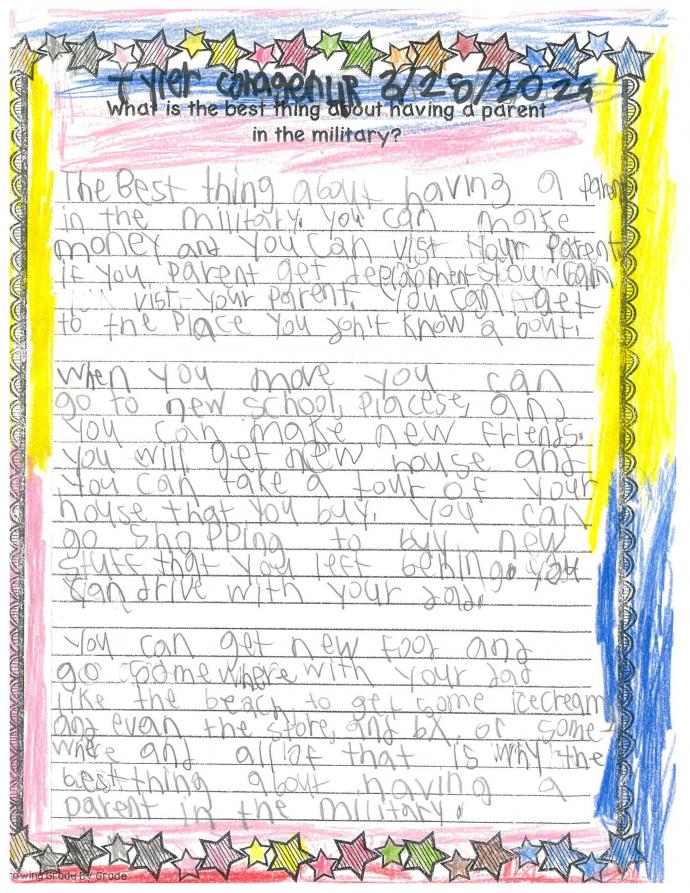 Tyler 3/28/2024
What is the best thing about having a parent
in the military?
The Best thing about having a parent
in the military. you can make
money and you can vist your Parent,
if you, parent get
vist your parent. You can get
to the place you don't know a bout.
when you move you can
go to new school, placese, and
you can make new friends.
you will get new house and
you can take a tour of your
house that you buy. you can
go shopping to buy new
stuff that you left behind. you
can drive with your dad.
you can get new food and
go somewhere with your dad
like the beach to get some icecream
and even the store, and bx or some-
where and all of that is why the
best thing about having a
parent in the military.
rowing Grade By Grade